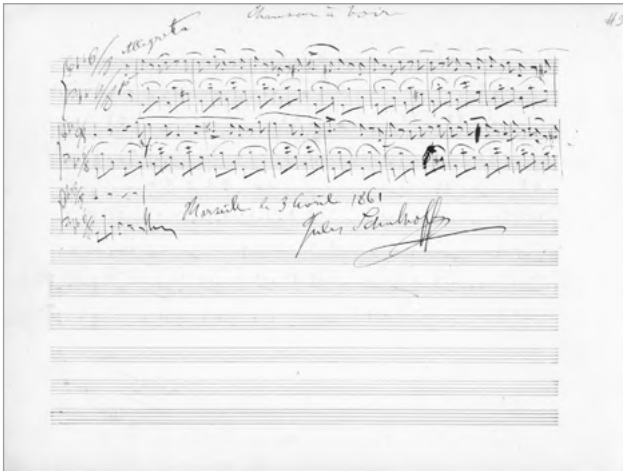 Chanson à boire
Allegretto
Marseille le 3 Août 1861
Jules Schulhoff